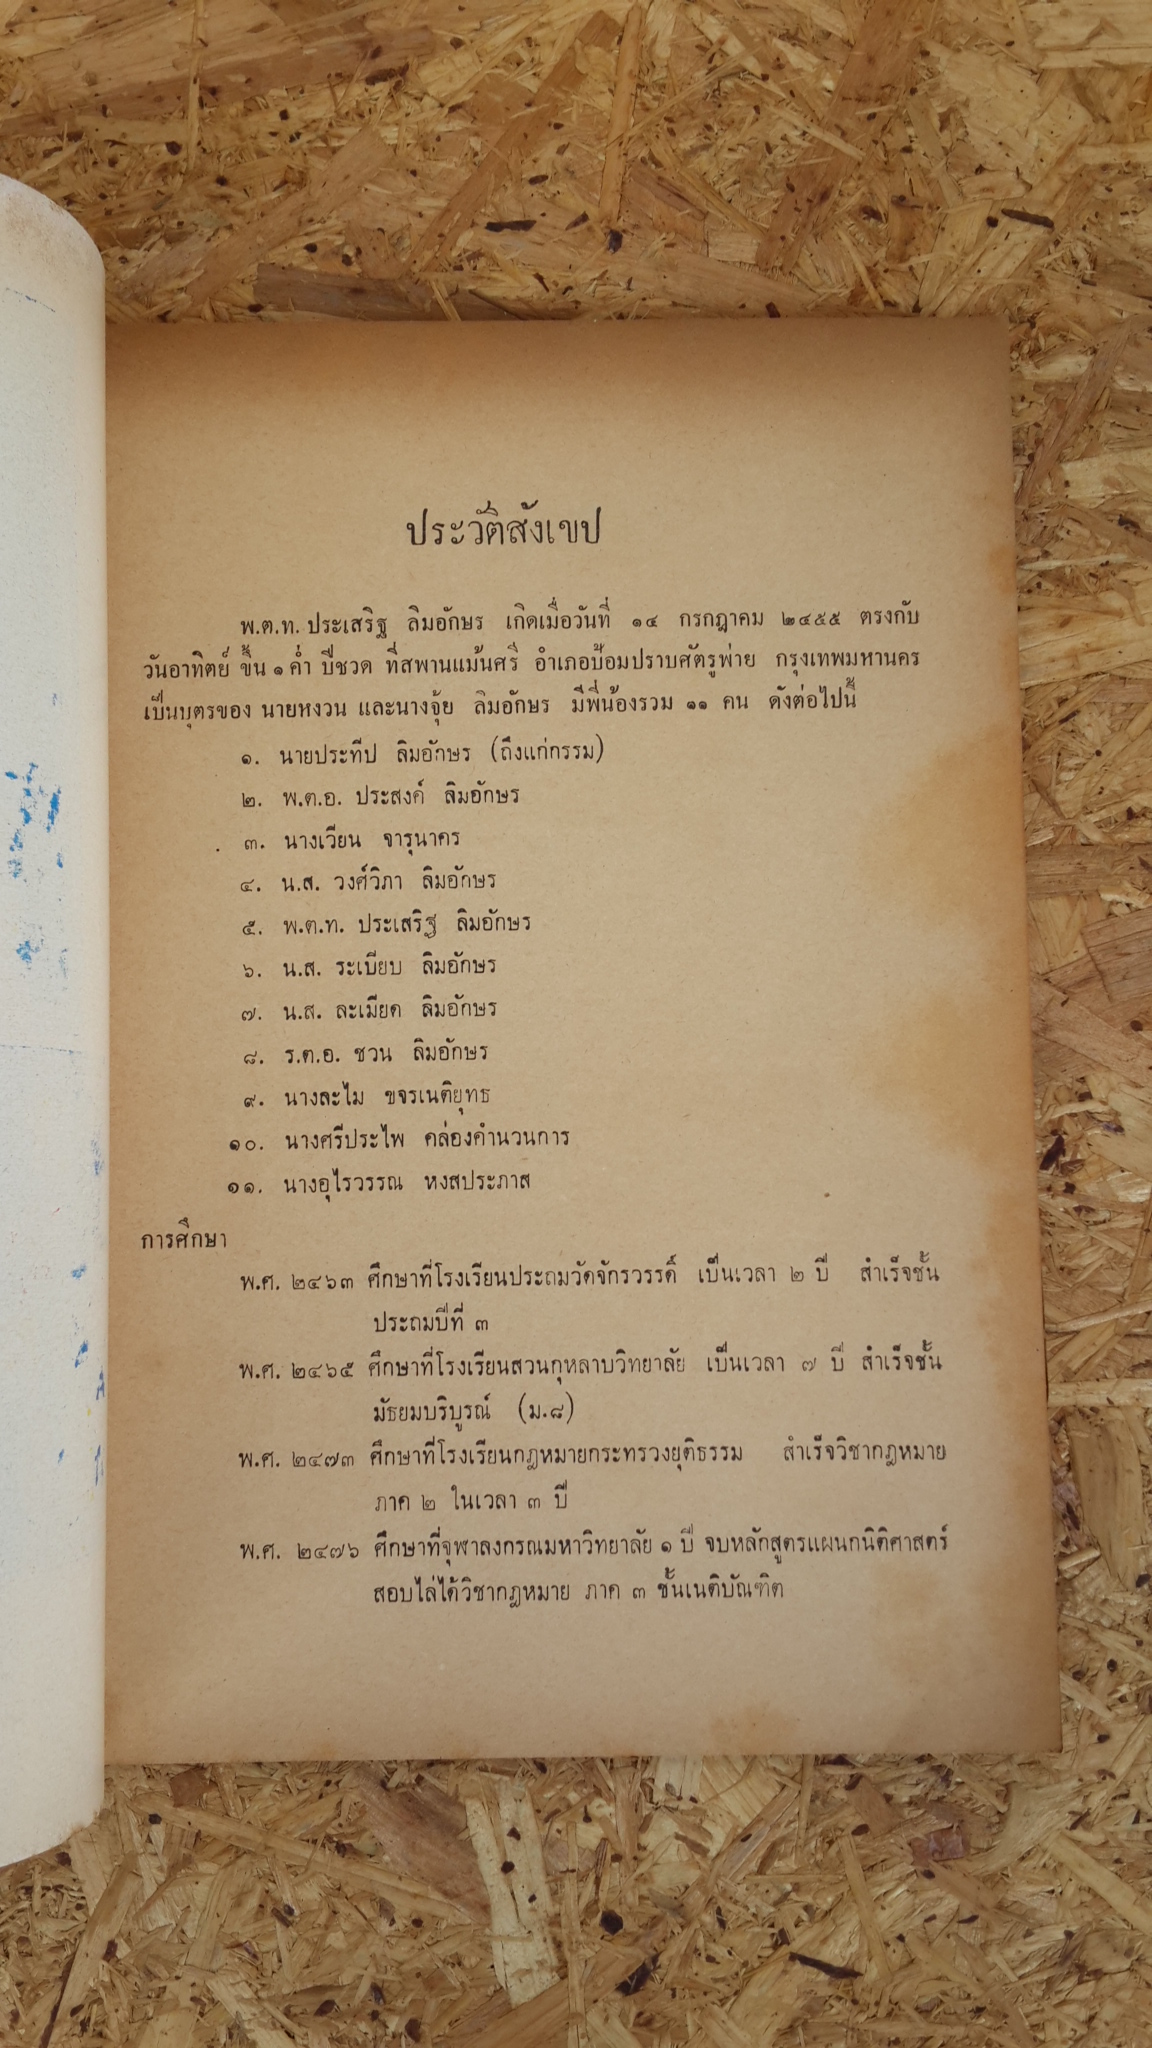 ประวัติสังเขป
พ.ต.ท. ประเสริฐ ลิมอักษร เกิดเมื่อวันที่ ๑๔ กรกฎาคม ๒๔๕๕ ตรงกับ
วันอาทิตย์ ขึ้น ๑ ค่ำ ปีชวด ที่สพานแม้นศรี อำเภอป้อมปราบศัตรูพ่าย กรุงเทพมหานคร
เป็นบุตรของ นายหงวน และนางจุ้ย ลิมอักษร มีพี่น้องรวม ๑๑ คน ดังต่อไปนี้
๑. นายประทีป ลิมอักษร (ถึงแก่กรรม)
๒. พ.ต.อ. ประสงค์ ลิมอักษร
๓. นางเวียน จารุนาคร
๔. น.ส. วงศ์วิภา ลิมอักษร
๕. พ.ต.ท. ประเสริฐ ลิมอักษร
๖. น.ส. ระเบียบ ลิมอักษร
๗. น.ส. ละเมียด ลิมอักษร
๘. ร.ต.อ. ชวน ลิมอักษร
๙. นางละไม ขจรเนติยุทธ
๑๐. นางศรีประไพ คล่องคำนวนการ
๑๑. นางอุไรวรรณ หงสประภาส
การศึกษา
พ.ศ. ๒๔๖๓ ศึกษาที่โรงเรียนประถมวัดจักรวรรดิ์ เป็นเวลา ๒ ปี สำเร็จชั้น
ประถมปีที่ ๓
พ.ศ. ๒๔๖๕ ศึกษาที่โรงเรียนสวนกุหลาบวิทยาลัย เป็นเวลา ๗ ปี สำเร็จชั้น
มัธยมบริบูรณ์ (ม.๘)
พ.ศ. ๒๔๗๓ ศึกษาที่โรงเรียนกฎหมายกระทรวงยุติธรรม สำเร็จวิชากฎหมาย
ภาค ๒ ในเวลา ๓ ปี
พ.ศ. ๒๔๗๖ ศึกษาที่จุฬาลงกรณมหาวิทยาลัย ๑ ปี จบหลักสูตรแผนกนิติศาสตร์
สอบไล่ได้วิชากฎหมาย ภาค ๓ ชั้นเนติบัณฑิต